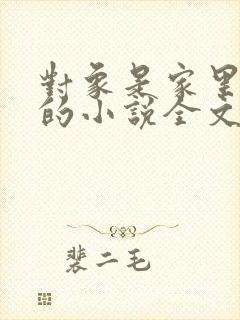 對象是家里
的小說全文
裴二毛